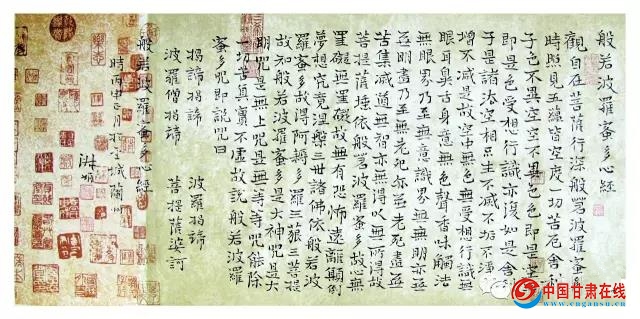 般若波羅蜜多心經
觀自在菩薩行深般若波羅蜜多
時照見五蘊皆空度一切苦厄舍利
子色不異空空不異色色即是空空
即是色受想行識亦復如是舍利
子是諸法空相不生不滅不垢不淨不
增不減是故空中無色無受想行識無
眼耳鼻舌身意無色聲香味觸法
無眼界乃至無意識界無無明亦無
無明盡乃至無老死亦無老死盡無
苦集滅道無智亦無得以無所得故
菩提薩埵依般若波羅蜜多故心無
罣礙無罣礙故無有恐怖遠離顛倒
夢想究竟涅槃三世諸佛依般若波
羅蜜多故得阿耨多羅三藐三菩提
故知般若波羅蜜多是大神咒是大
明咒是無上咒是無等等咒能除
一切苦真實不虛故說般若波羅
蜜多咒即說咒曰
揭諦揭諦 波羅揭諦
波羅僧揭諦 菩提薩婆訶
般若波羅蜜多心經
時丙申正月於金城蘭州
中国甘肃在线
www.cngansu.cn